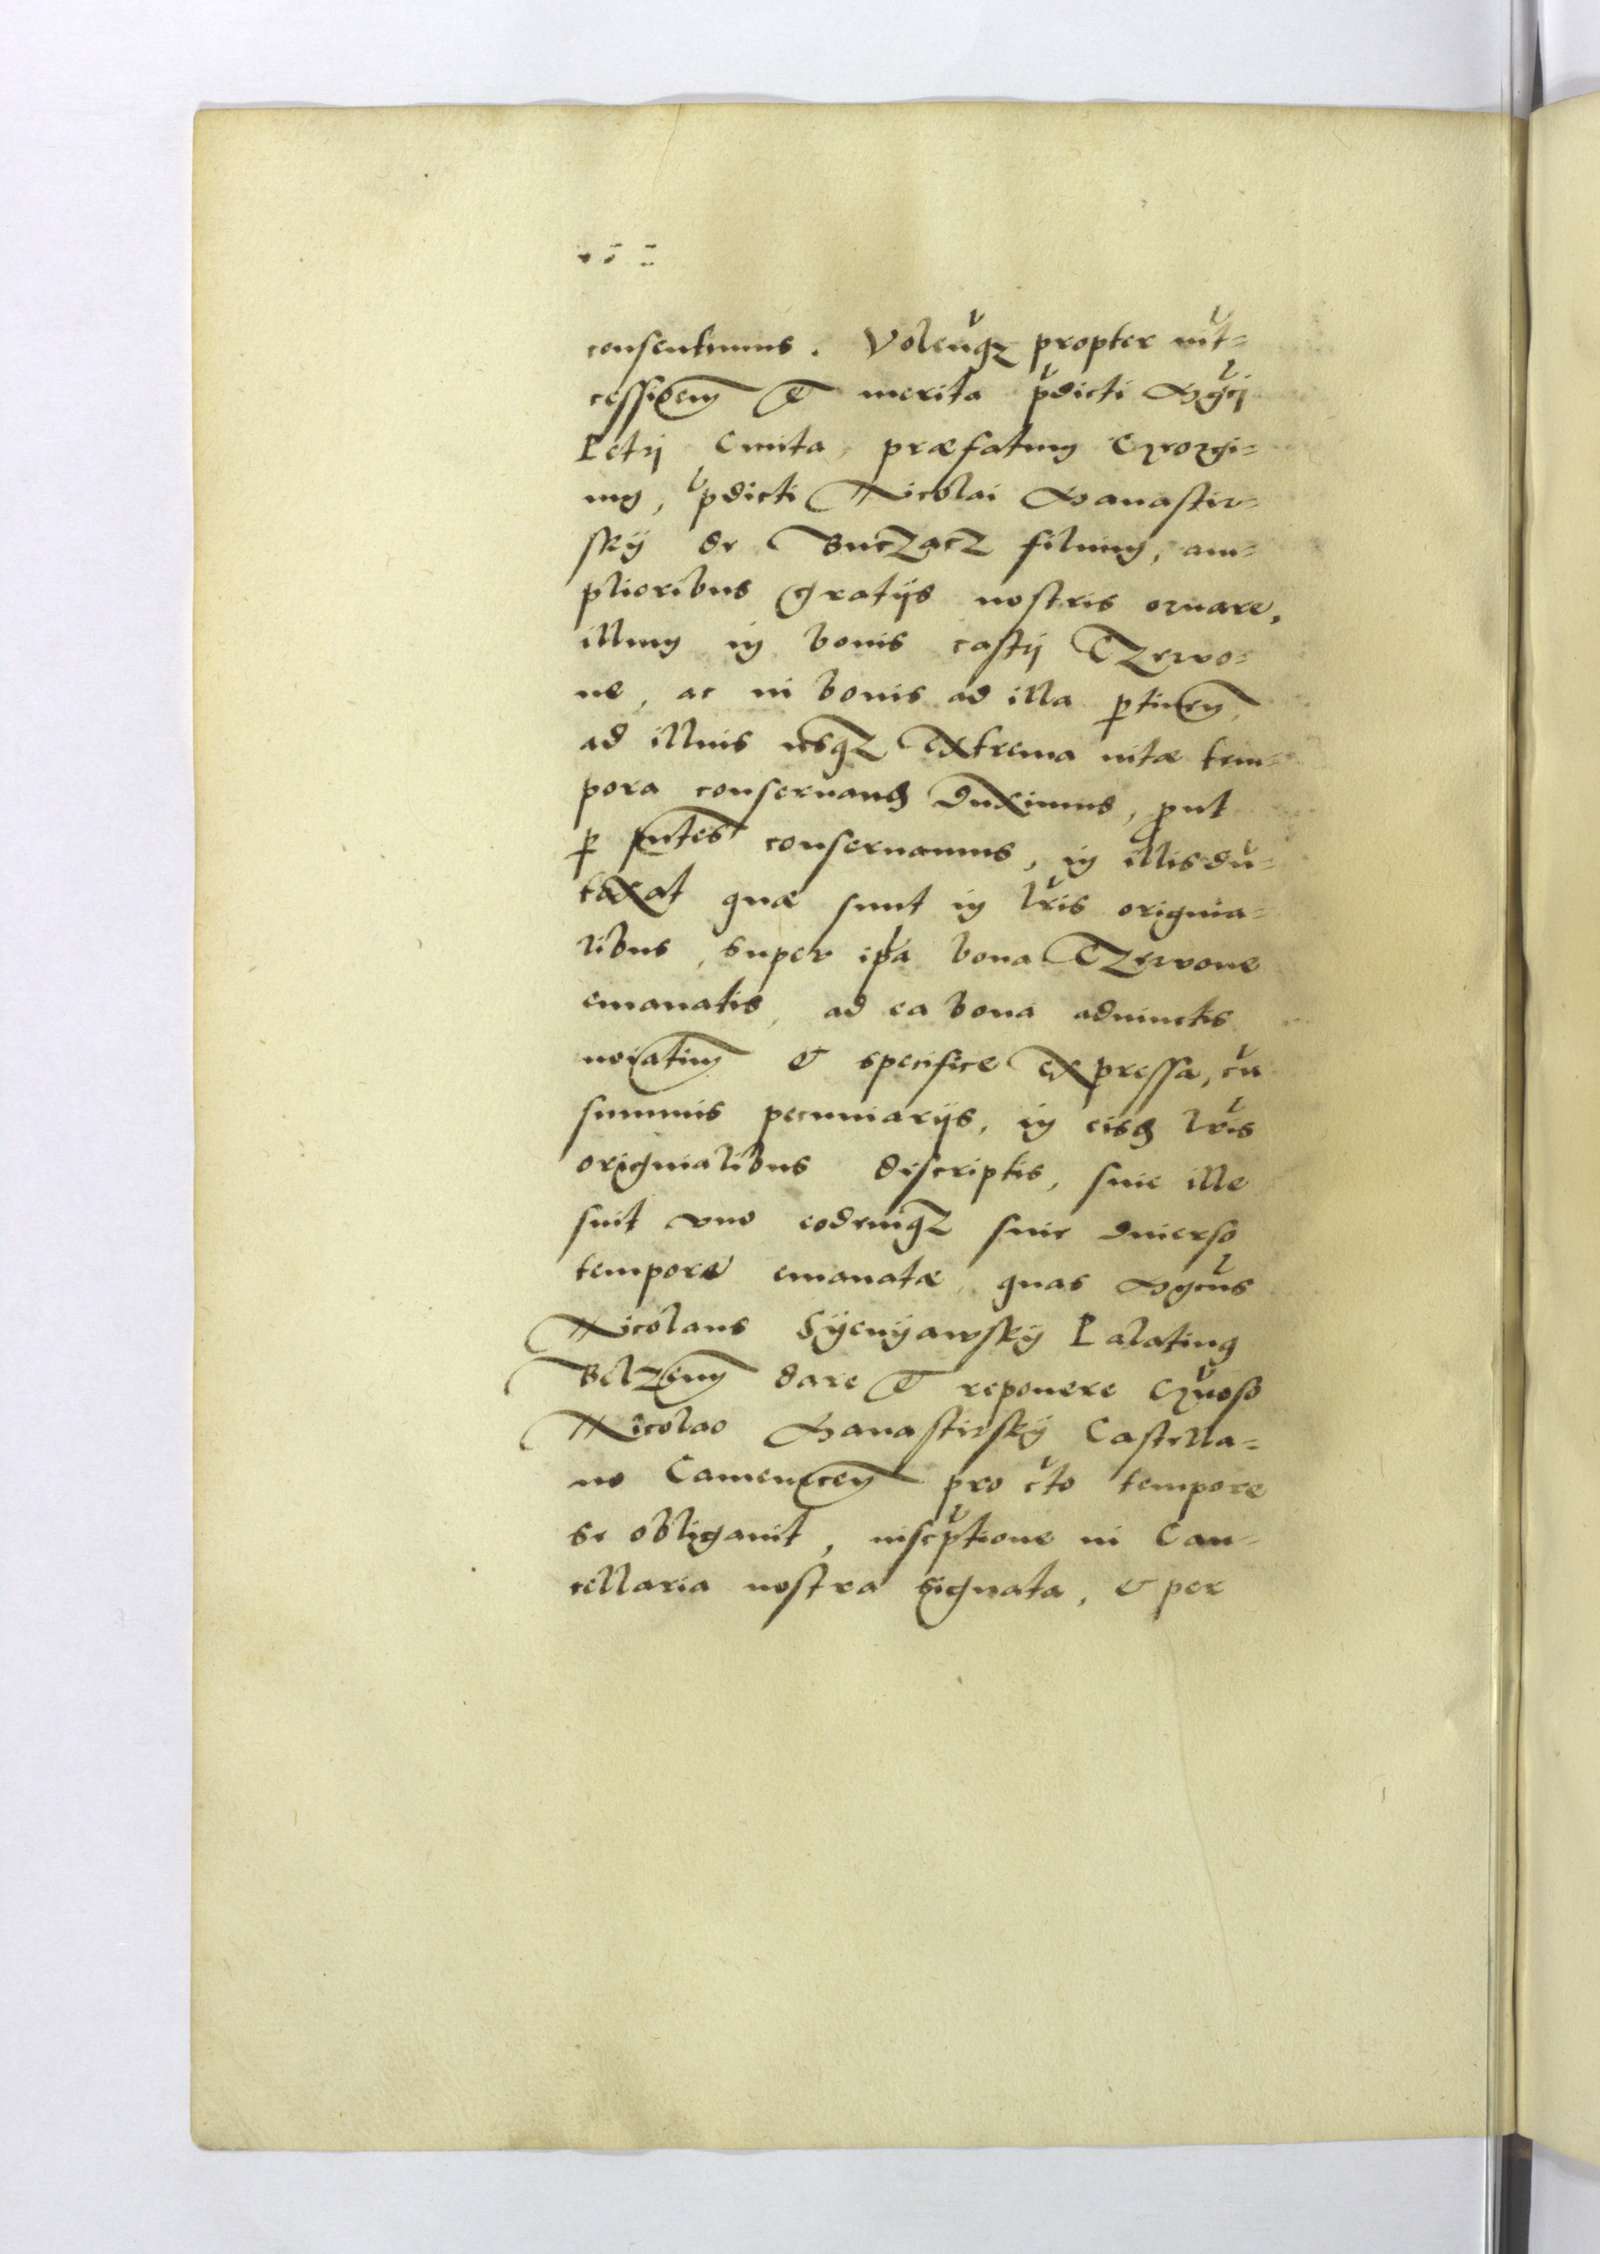 consentimus. Volen̄qz propter int̄-
cessioem et merita p̄dicti Mgc̄i
Petri Cmita, præfatum Generosi-
um, p̄dicti Nicolai Manastir-
sky de Buczacz filium, am-
plioribus gratijs nostris ornare,
illum in bonis castri Czerwo-
ne, ac in bonis ad illa ptinen,
ad illius usqz extrema vitæ tem-
pora conservand duximus, prout
p pntes conservamus, in illis dū-
taxat quæ sunt in lr̄is origina-
libus, super ip̄a bona Czerwone
emanatis, ad ea bona adiunctis
noiatim & specifice expressa, cū
summis pecuniarijs, in eisd lr̄is
originalibus discriptis, sive ille
sint uno eodemqz sive diverso
tempore emanatæ, quas Mgcūs
Nicolaus Syenyawsky Palatinus
Belzenn dare et reponere Gn̄roso
Nicolao Manastirsky Castella-
no Camenicen pro c̄to tempore
se obligavit, insc̄ptione in Can-
cellaria nostra signata, & per